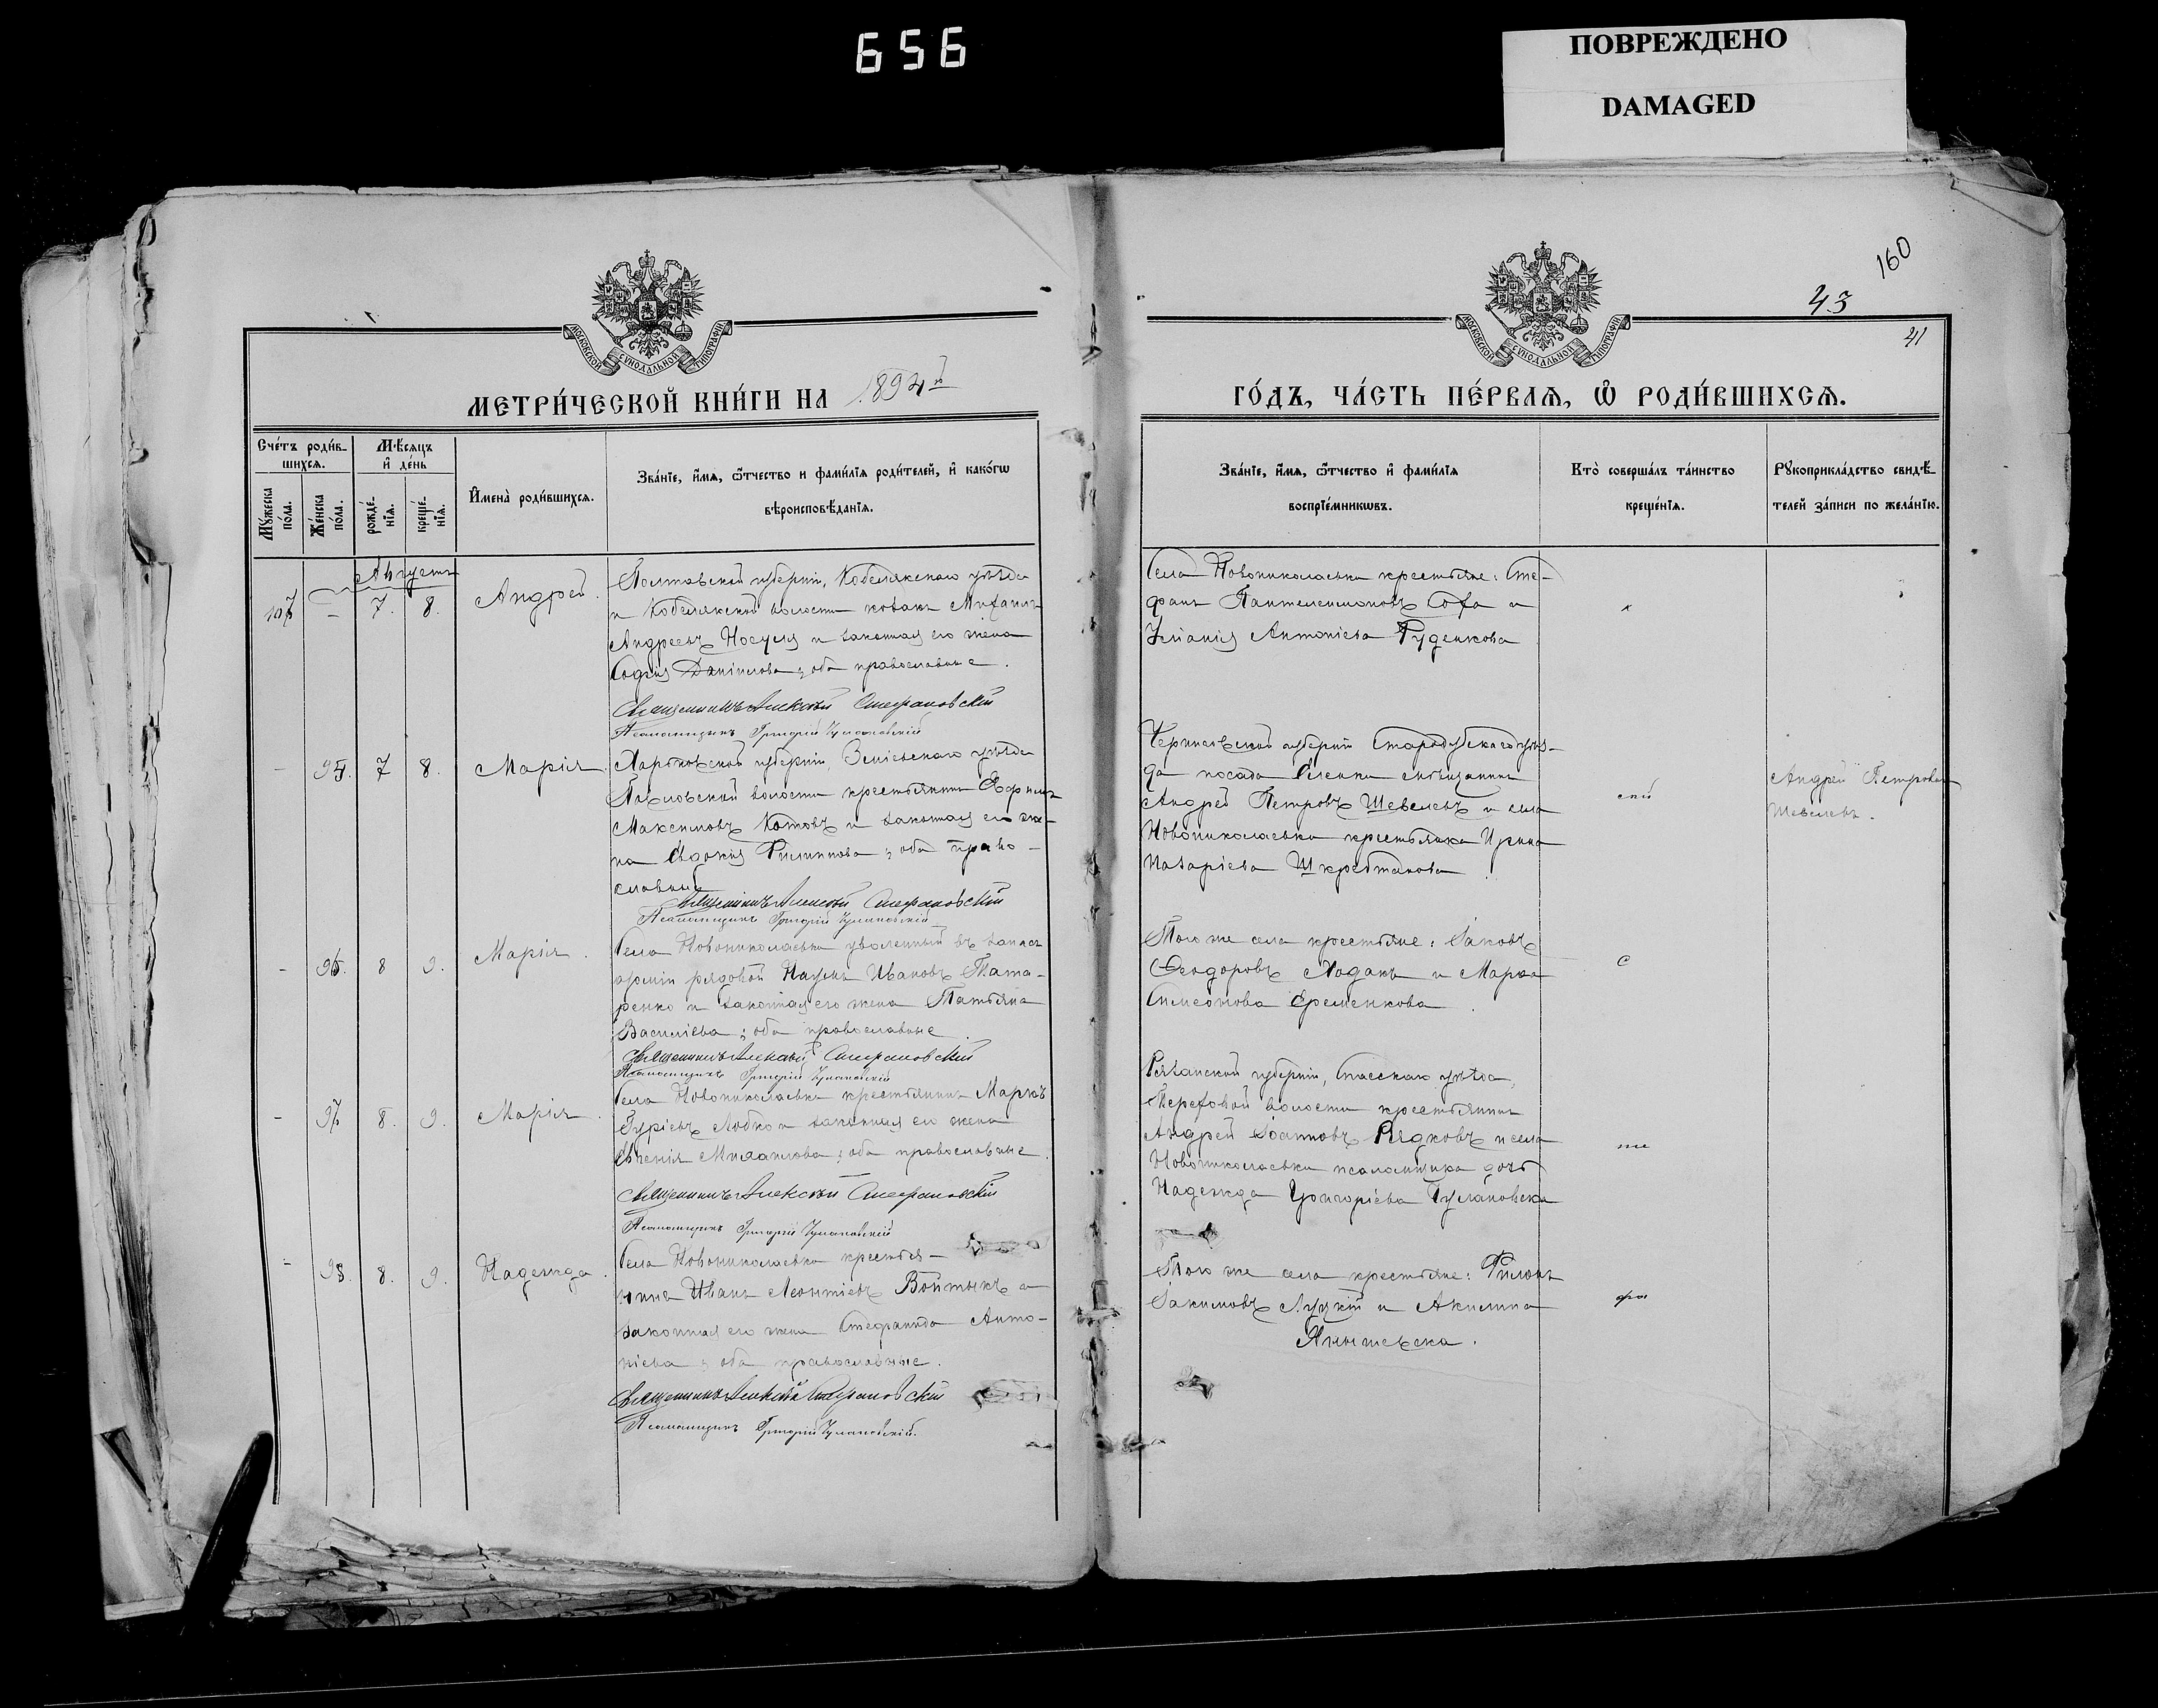 656
ПОВРЕЖДЕНО
DAMAGED
160
43
41
МОСКОВСКОЙ СѴНОДАЛЬНОЙ ТИПОГРАФІИ
МОСКОВСКОЙ СѴНОДАЛЬНОЙ ТИПОГРАФІИ
МЕТРИ́ЧЕСКОЙ КНИ́ГИ НА 1894й
ГО́ДЪ, ЧА́СТЬ ПЕ́РВАѦ, Ѽ РОДИ́ВШИХСѦ.
Сче́тъ роди́в-
шихся.
Мѣ́сяцъ
и҆ де́нь
Мꙋ́жеска
по́ла.
Же́нска
по́ла.
рожде́-
нїѧ.
креще́-
нїѧ.
И҆мена̀ роди́вшихся.
Зва́нїе, и҆́мѧ, ѻ҆́тчество и фами́лїѧ роди́телей, и҆ како́гѡ
вѣроисповѣ́данїѧ.
Зва́нїе, и҆́мѧ, ѻ҆́тчество и҆ фами́лїѧ
воспрїе́мникѡвъ.
Кто̀ соверша́лъ та́инство
креще́нїѧ.
Рꙋкоприкла́дство свидѣ́-
телей за́писи по жела́нїю.
Августъ
107 - 7. 8. Андрей.
Полтавской губерніи, Кобелякскаго уѣзда
и Кобелякской волости козакъ Михаилъ
Андреевъ Носуля и законная его жена
Софія Даніилова; оба православные.
Священникъ Алексѣй Стефановскій
Псаломщикъ Григорій Чумановскій
Села Новониколаевки крестьяне: Сте-
фанъ Пантелеимоновъ Соха и
Іуліанія Антоніева Руденкова
- 95. 7 8. Марія
Харьковской губерніи, Зміевскаго уѣзда
волости крестьянинъ Ефимъ
Максимовъ Котовъ и законная его же-
на Евдокія Филиппова; оба право-
славные
Священникъ Алексѣй Стефановскій
Псаломщикъ Григорій Чумановскій
Черниговской губерніи Стародубскаго уѣз-
да посада мѣщанинъ
Андрей Петровъ Шевелевъ и села
Новониколаевки крестьянка Ирина
Назаріева
скій
Андрей Петровъ
Шевелевъ.
- 96. 8 9. Марія.
Села Новониколаевки уволенный въ запасъ
арміи рядовой Наумъ Ивановъ Тата-
ренко и законная его жена Татьяна
Василіева; оба православные
Священникъ Алексѣй Стефановскій
Псаломщикъ Григорій Чумановскій
Того же села крестьяне: Іаковъ
Ѳеодоровъ Ладанъ и Марѳа
Симеонова Еременкова.
С
- 97. 8. 9. Марія.
Села Новониколаевки крестьянинъ Маркъ
Гуріевъ Лобко и законная его жена
Евгенія Михаилова; оба православные.
Священникъ Алексѣй Стефановскій
Псаломщикъ Григорій Чумановскій
Рязанской губерніи, Спасскаго уѣзда,
Тереховой волости крестьянинъ
Андрей Іоанновъ Рядковъ и села
Новониколаевки псаломщика дочь
Надежда Григоріева Чумановска
- 98. 8. 9. Надежда.
Села Новониколаевки крестья-
нинъ Иванъ Леонтіевъ Войтыкъ и
законная его жена Стефанида Анто-
ніева; оба православные.
Священникъ Алексѣй Стефановскій
Псаломщикъ Григорій Чумановскій.
Того же села крестьяне: Филонъ
Іакимовъ Луцкій и Акилина
фа